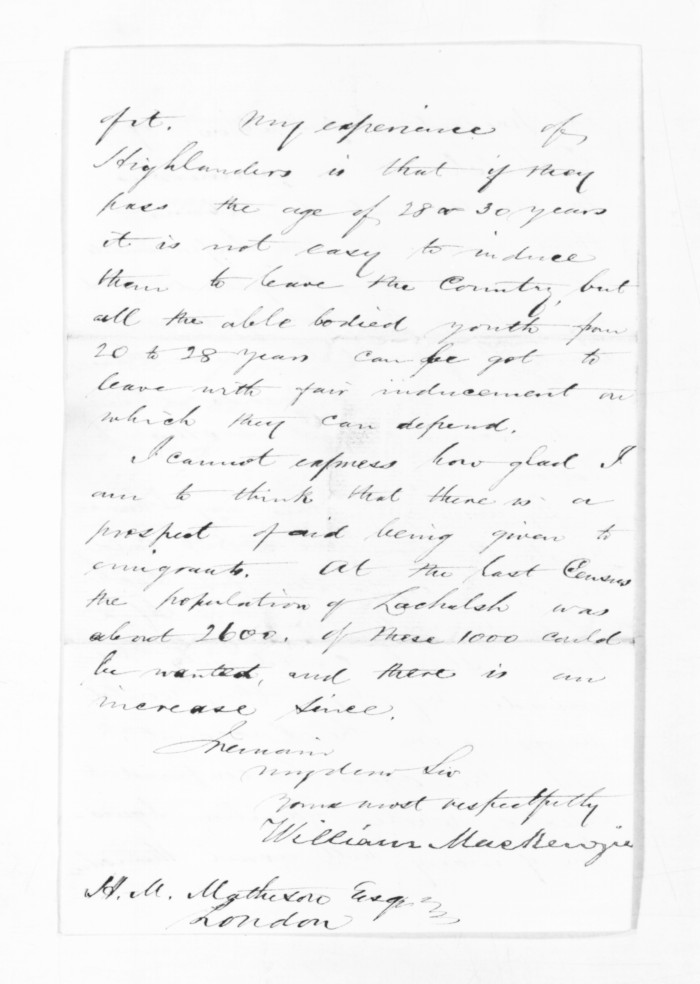 of it. My experience of
Highlanders is that if they
pass the age of 28 or 30 years
it is not easy to induce
them to leave the Country, but
all the able bodied youth from
20 to 28 years can be got to
leave with fair inducement on
which they can depend.
I cannot express how glad I
am to think that there is a
prospect of aid being given to
emigrants. At the last Census
the population of Lochalsh was
about 2600. of these 1000 could
be wanted, and there is an
increase since.
I remain
My dear Sir
Yours most respectfully
William MacKenzie
H. M. Matheson Esqr
London